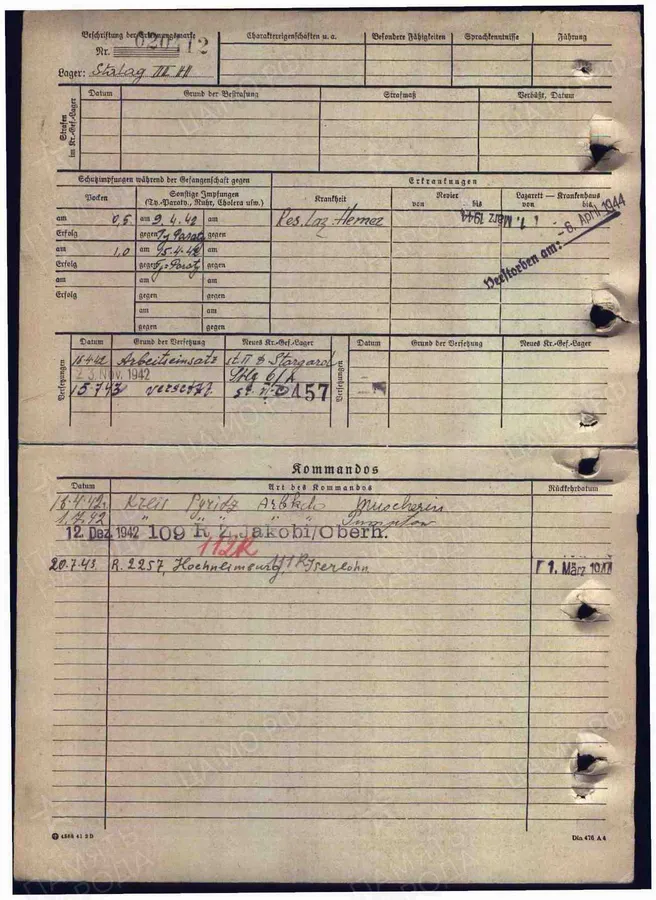 Beschriftung der Erkennungsmarke
Nr.
Lager: Stalag
Charaktereigenschaften u. a.
Besondere Fähigkeiten
Sprachkenntnisse
Führung
Strafen im Kr.-Gef.-Lager
Datum
Grund der Bestrafung
Strafmaß
Verbüßt, Datum
Schutzimpfungen während der Gefangenschaft gegen
Erkrankungen
Pocken
Sonstige Impfungen
(Ty.-Paraty., Ruhr, Cholera usw.)
Krankheit
Revier
von bis
Lazarett — Krankenhaus
von bis
am 0,5 am 9.4.42 am
Res. Laz. Hemer
1. März 1944
Verstorben am: - 6. April 1944
Erfolg gegen Ty Paraty gegen
am 1,0 am 15.4.42 am
Erfolg gegen Ty-Paraty gegen
am am am
Erfolg gegen gegen
am am
gegen gegen
Versetzungen
Datum
Grund der Versetzung
Neues Kr.-Gef.-Lager
Versetzungen
Datum
Grund der Versetzung
Neues Kr.-Gef.-Lager
Arbeitseinsatz st. II D Stargard
23. Nov. 1942 Stlg 6/A
15.7.43 versetzt. 457
Kommandos
Datum
Art des Kommandos
Rückkehrdatum
16.4.42 Kreis Pyritz Arb.Kdo Muscherin
1.7.42 " "
12. Dez. 1942 109 R Z. Jakobi/Oberh.
112R
20.7.43. R. 2257, Hohenlimburg, Iserlohn
1. März 1944
4568 41 3 D
Din 476 A 4